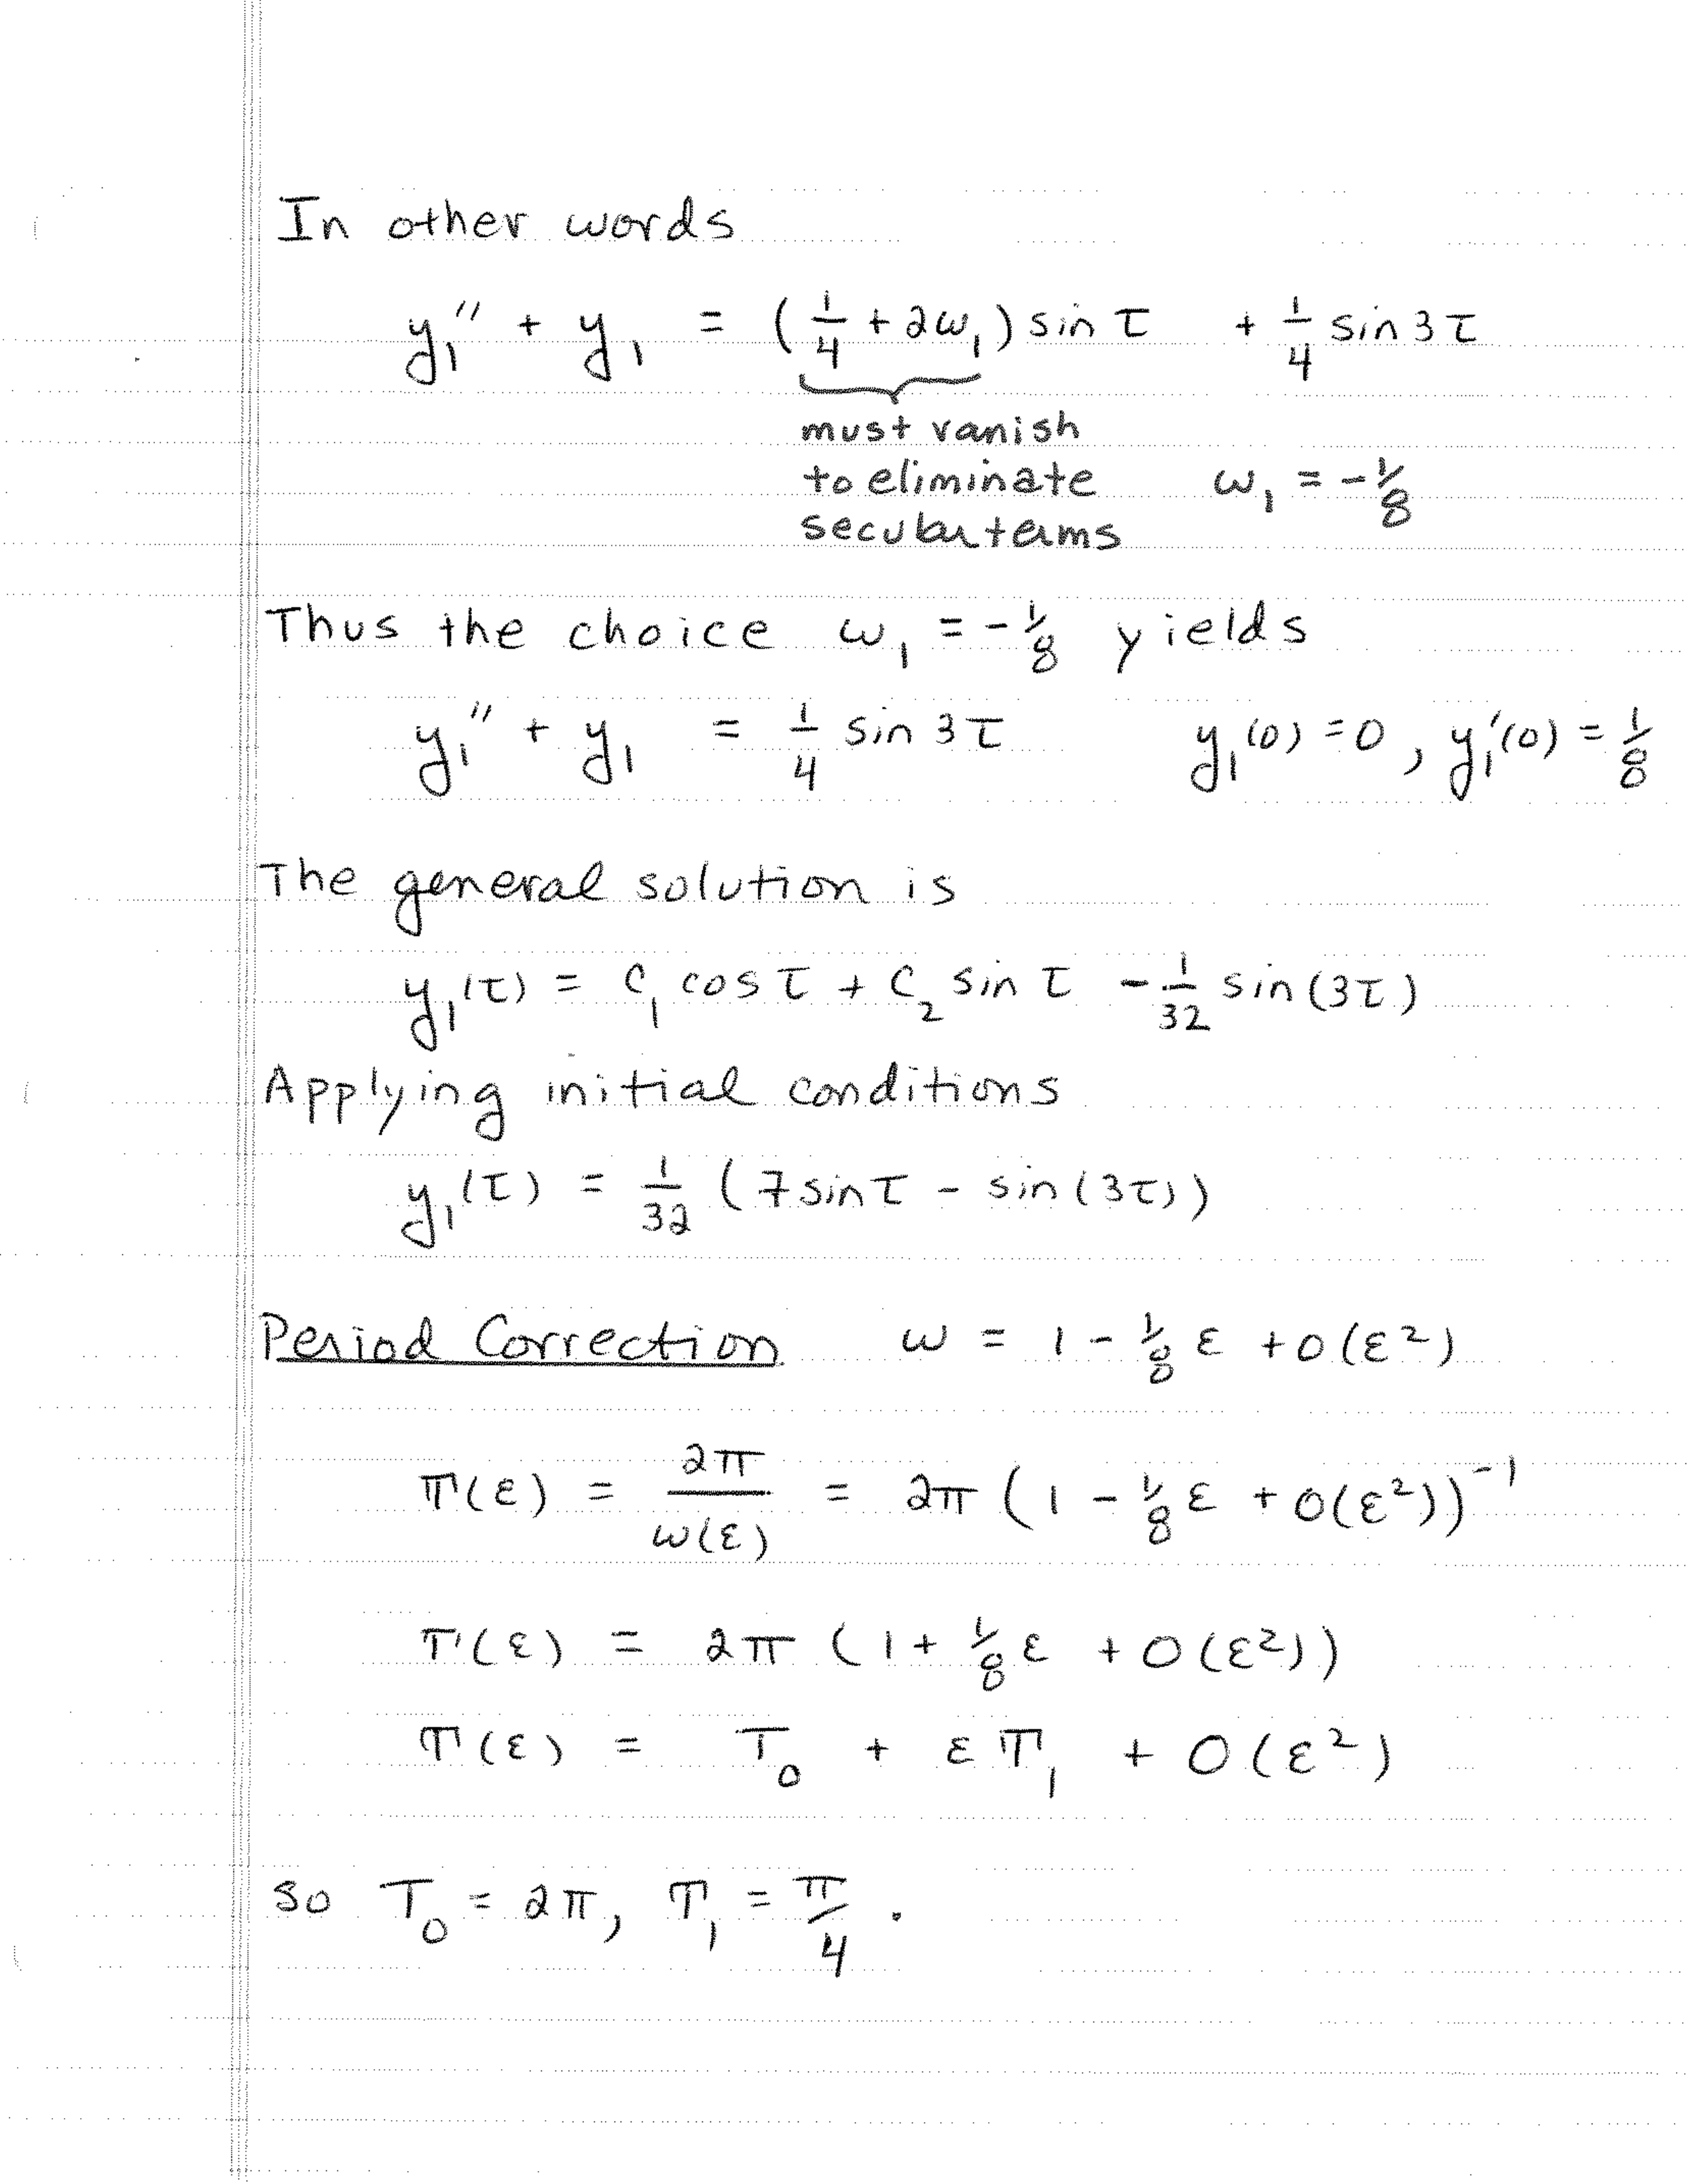 In other words
y₁'' + y₁ = (1/4 + 2ω₁) sin τ + 1/4 sin 3τ
must vanish
to eliminate ω₁ = -1/8
secular terms
Thus the choice ω₁ = -1/8 yields
y₁'' + y₁ = 1/4 sin 3τ y₁(0) = 0, y₁'(0) = 1/8
The general solution is
y₁(τ) = c₁ cos τ + c₂ sin τ - 1/32 sin(3τ)
Applying initial conditions
y₁(τ) = 1/32 (7 sin τ - sin(3τ))
Period Correction ω = 1 - 1/8 ε + O(ε²)
T(ε) = 2π/ω(ε) = 2π (1 - 1/8 ε + O(ε²))⁻¹
T(ε) = 2π (1 + 1/8 ε + O(ε²))
T(ε) = T₀ + ε T₁ + O(ε²)
so T₀ = 2π, T₁ = π/4 .